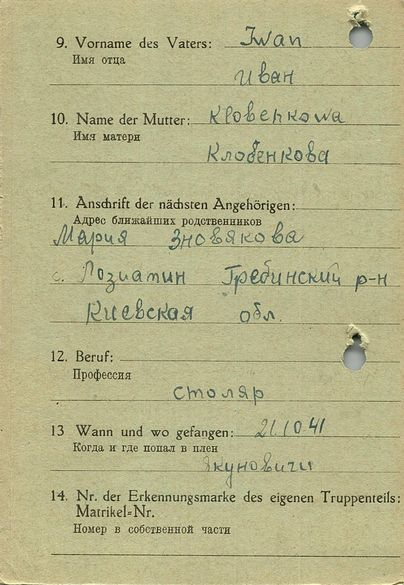 9. Vorname des Vaters: Iwan
Имя отца
Иван
10. Name der Mutter: Klobenkowa
Имя матери
Клобенкова
11. Anschrift der nächsten Angehörigen:
Адрес ближайших родственников
Мария Зновякова
с. Лозиатин Гребинский р-н
Киевская обл.
12. Beruf:
Профессия
столяр
13 Wann und wo gefangen: 21.10.41
Когда и где попал в плен
Якуновичи
14. Nr. der Erkennungsmarke des eigenen Truppenteils:
Matrikel-Nr.
Номер в собственной части